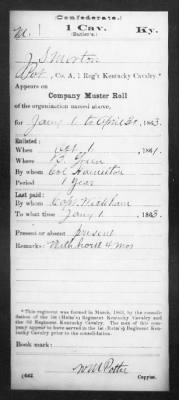 (Confederate.)
M. 1 Cav. Ky.
(Butler's.)
J S Morton
Pvt, Co. A, 1 Reg't Kentucky Cavalry.*
Appears on
Company Muster Roll
of the organization named above,
for Jany 1 to April 30, 1863.
Enlisted:
When Oct 1, 1861.
Where B. Green
By whom Col Hamilton
Period 1 Year
Last paid:
By whom Cap. Wickham
To what time Jany 1, 1863.
Present or absent present
Remarks: With hord 4 mos
*This regiment was formed in March, 1863, by the consolidation
of the 1st (Helm's) Regiment Kentucky Cavalry and
the 3d Regiment Kentucky Cavalry. The men of this company
appear to have served in the 1st (Helm's) Regiment Kentucky
Cavalry prior to the consolidation.
Book mark:
W M Potter
(642) Copyist.